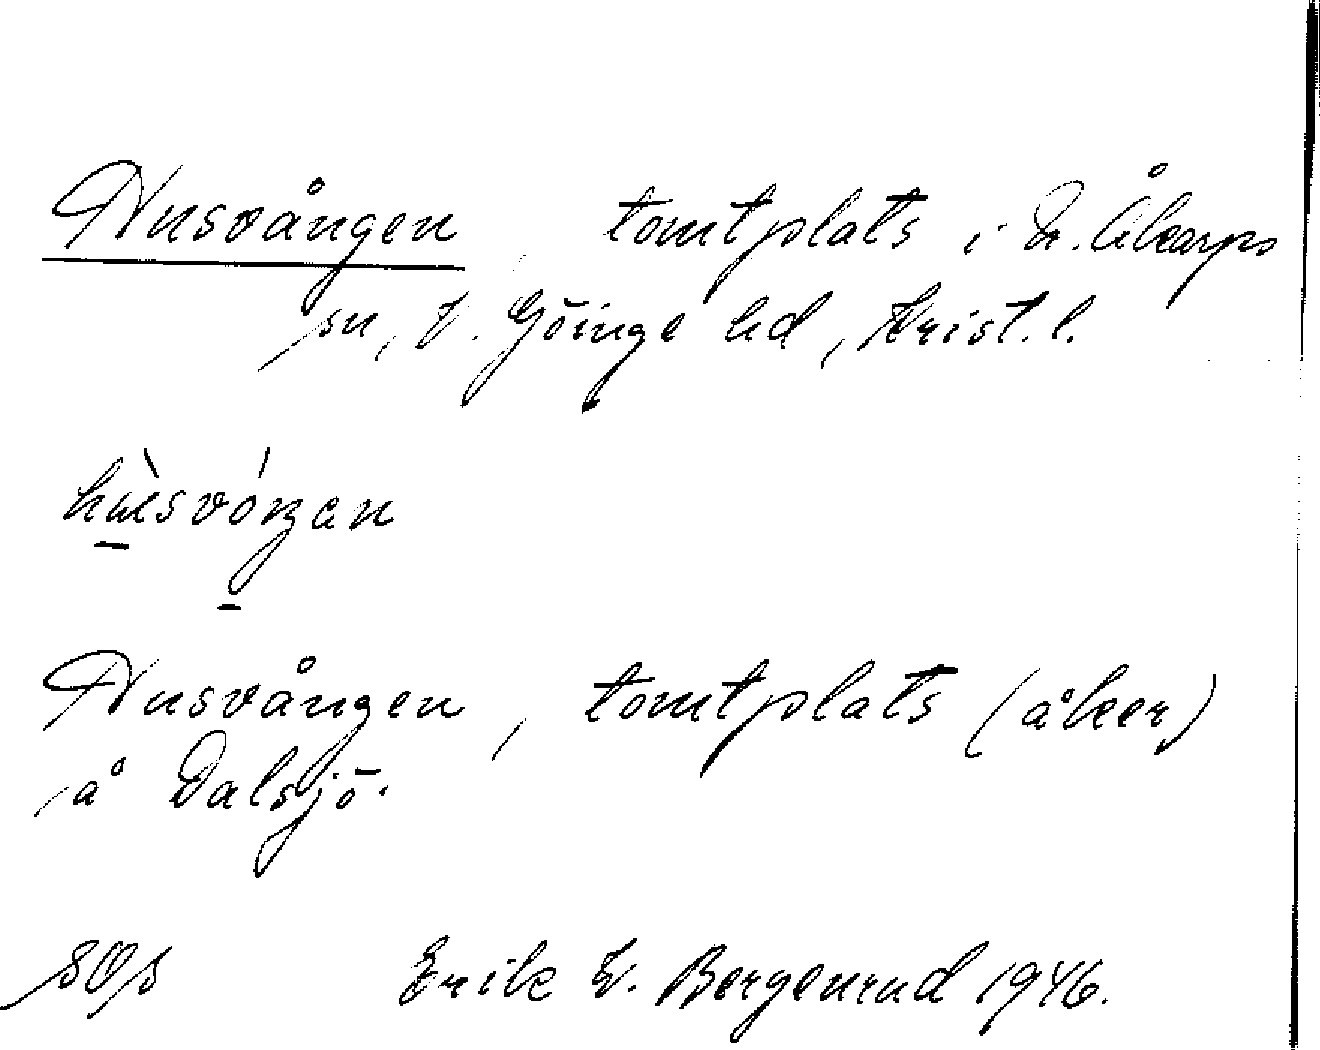 Husvången, tomtplats i N. Åkarps
sn, V. Göinge hd, Krist. l.
hùsvóŋan
Husvången, tomtplats (åker)
å Dalsjö.
Erik W. Bergenrud 1946.